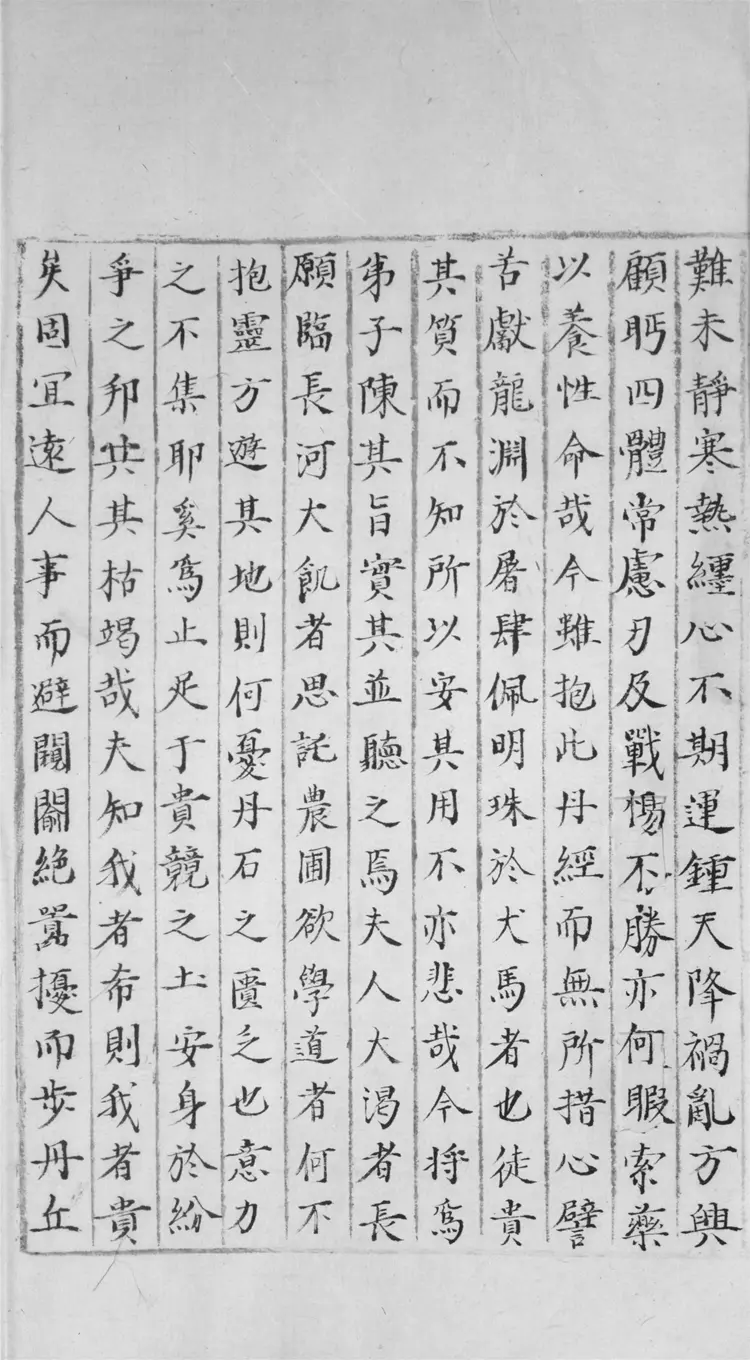 難未靜寒熱纏心不期運鍾天降禍亂方興
顧眄四體常慮刃及戰惕不勝亦何暇索藥
以養性命哉今雖抱此丹經而無所措心譬
苦獻龍淵於屠肆佩明珠於犬馬者也徒貴
其質而不知所以安其用不亦悲哉今將爲
弟子陳其旨實其並聽之焉夫人大渴者長
願臨長河大飢者思託農圃欲學道者何不
抱靈方遊其地則何憂丹石之匱乏也意力
之不集耶奚爲止足于貴競之土安身於紛
爭之邦共其枯竭哉夫知我者希則我者貴
矣固宜遠人事而避闤闠絶嚣擾而步丹丘